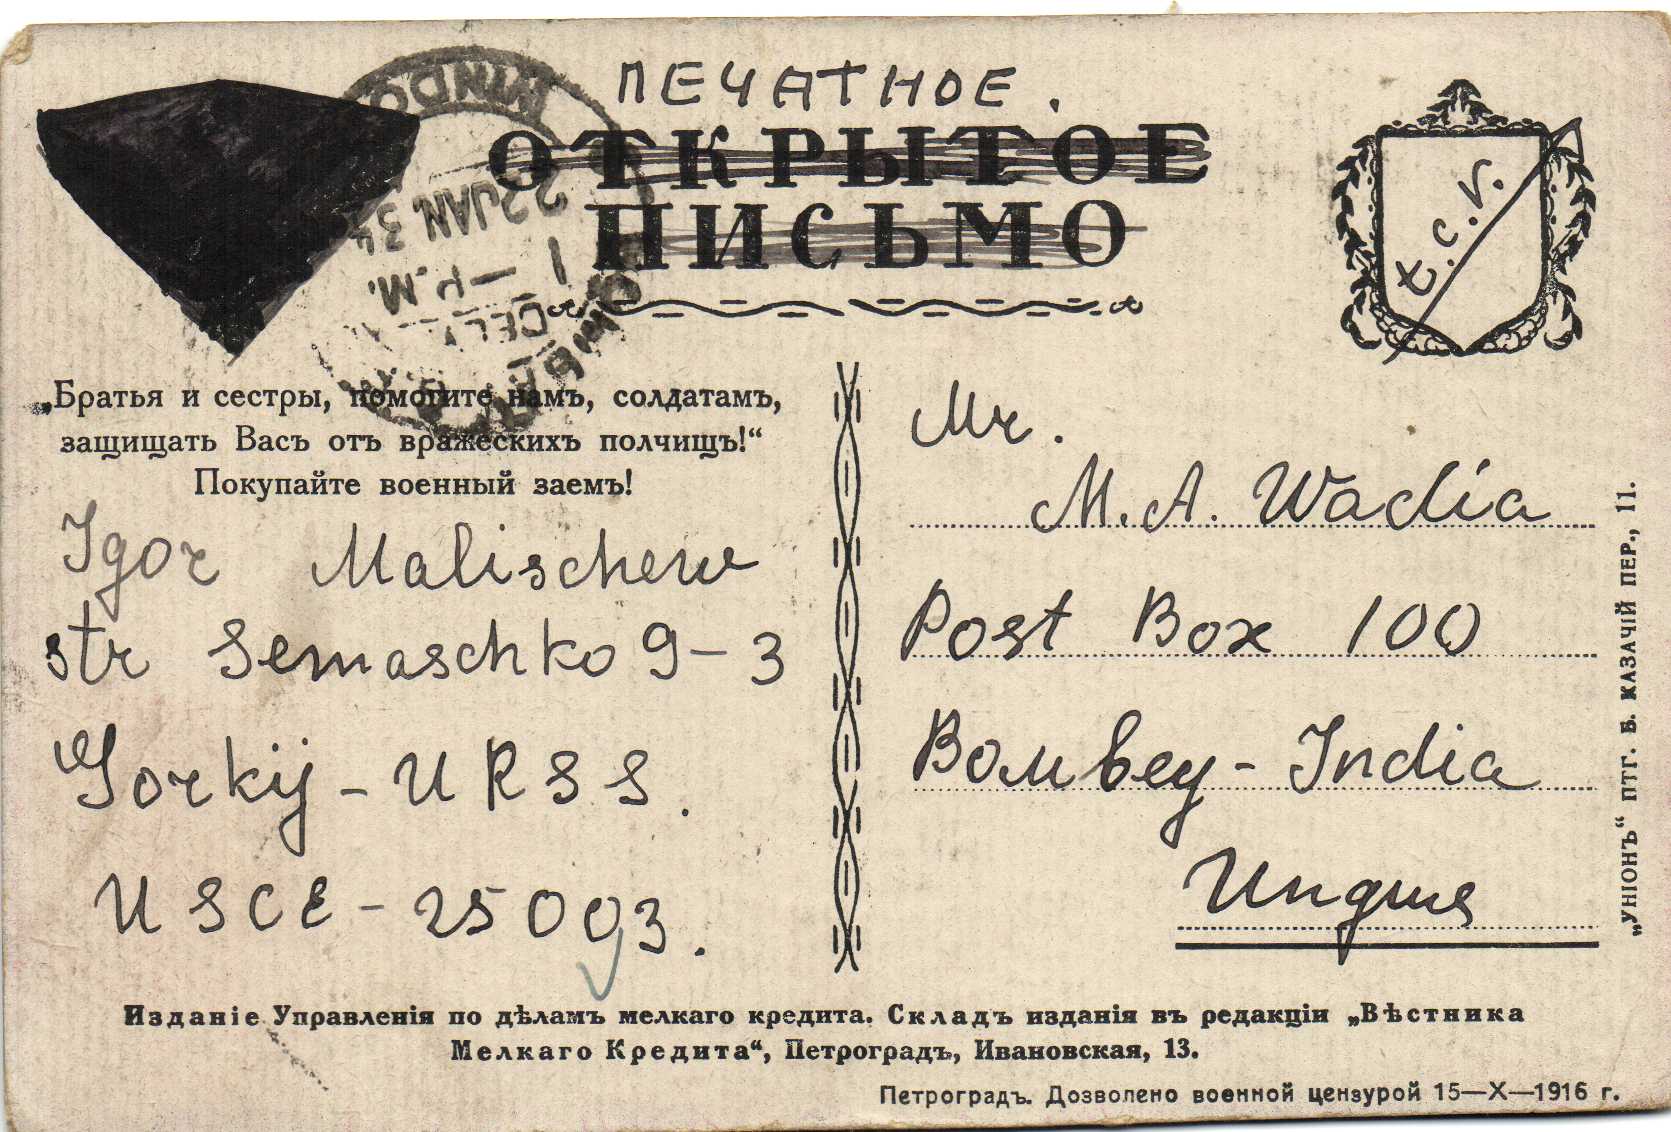 ПЕЧАТНОЕ.
ОТКРЫТОЕ
ПИСЬМО
22 JAN. 34
1 - P.M.
t.c.v.
„Братья и сестры, помогите намъ, солдатамъ,
защищать Васъ отъ вражескихъ полчищъ!“
Покупайте военный заемъ!
Igor Malischew
str Semaschko 9-3
Gorkij - URSS.
USCE - 25003.
Mr.
M. A. Wadia
Post Box 100
Bombey - India
Индия
„УНІОНЪ“ ПТГ. Б. КАЗАЧІЙ ПЕР., 11.
Изданіе Управленія по дѣламъ мелкаго кредита. Складъ изданія въ редакціи „Вѣстника
Мелкаго Кредита“, Петроградъ, Ивановская, 13.
Петроградъ. Дозволено военной цензурой 15—X—1916 г.